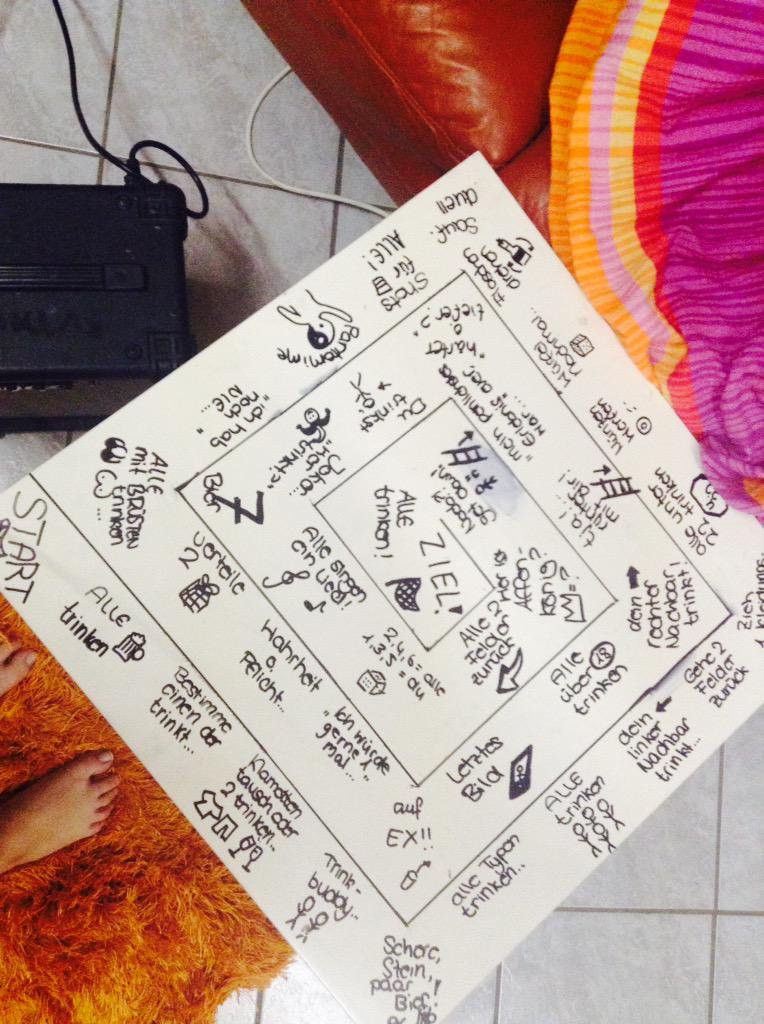 START
ALLE
trinken
Bestimme
einen der
trinkt...
Klamotten
tausch oder
2 trinken..
Trink-
buddy..
Stein,
paar
Bier!
alle Typen
trinken..
ALLE
trinken
dein
linker
Nachbar
trinkt...
Gehe 2
Felder
zurück
Zieh
1
alle unter
22
trinken
Würfel
nochmal..
Sauf.
Duell
Shots
für
ALLE!
Pantomime
"ich hab
noch
nie..."
ALLE
mit BRÜSTEN
trinken
...
verteile
2
Wahrheit
o.
Pflicht...
"Ich würde
gerne 1
mal..."
auf
EX!!
Letztes
Bild
Alle
über 18
trinken
dein
rechter
Nachbar
trinkt!
tja!
mir
"mein peinlichstes
war...
"härter
o.
tiefer?"
Du
trinkst
Joker..
trinkt?"
7
Alle singen
ein Lied!
2,4,6 = alle
1,3,5 = du
Alle 2
Felder
zurück
Affen-
könig
ALLE
trinken!
ZIEL!